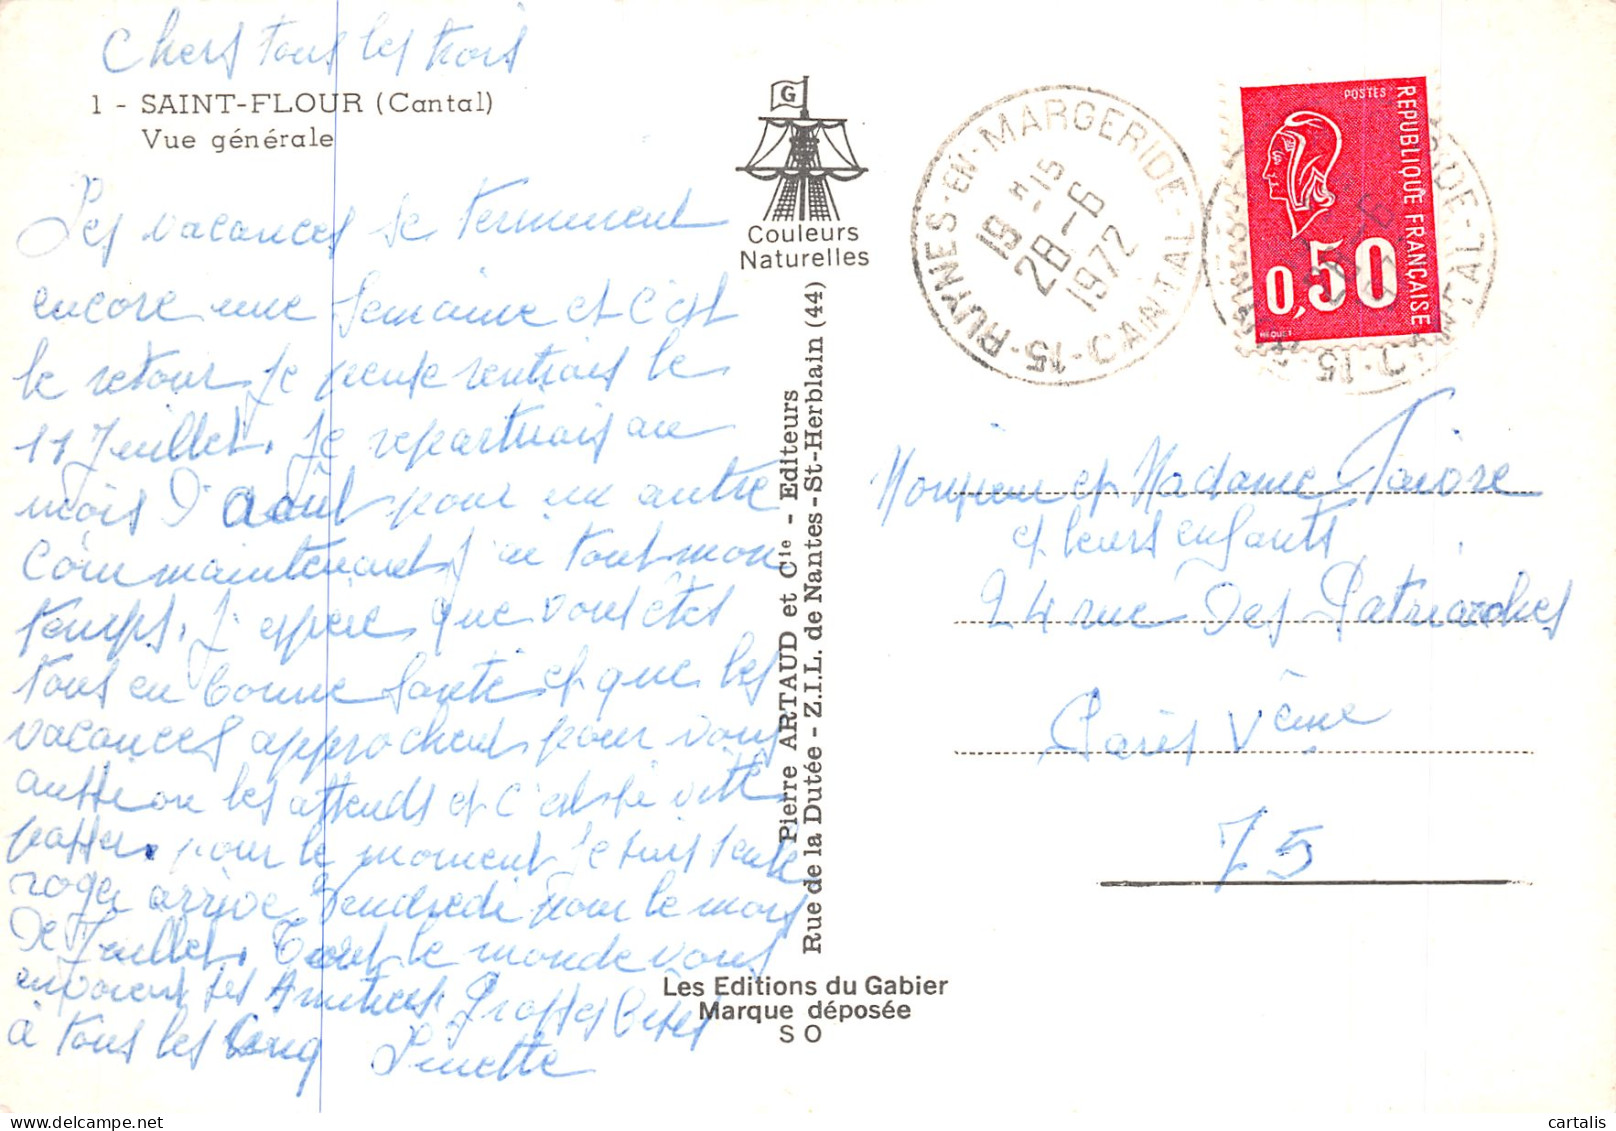 Chers tous les trois
1 - SAINT-FLOUR (Cantal)
Vue générale
Les vacances se terminent
encore une semaine et c'est
le retour je pense rentrais le
11 Juillet. Je repartirais au
mois d'août pour un autre
coin maintenant j'ai tout mon
temps. J'espère que vous êtes
tous en bonne santé et que les
vacances approchent pour vous
aussi on les attends et c'est si vite
passer. pour le moment je suis seule
roger arrive Vendredi pour le mois
de Juillet. Tout le monde vous
envoient ses Amitiés. Grosses bises
à tous les cinq
G
Couleurs
Naturelles
Pierre ARTAUD et Cie - Editeurs
Rue de la Dutée - Z.I.L. de Nantes - St-Herblain (44)
Les Editions du Gabier
Marque déposée
S O
15 - RUYNES-EN-MARGERIDE - CANTAL
19 H 15
28-6
1972
POSTES
REPUBLIQUE FRANÇAISE
0,50
BEQUET
Monsieur et Madame
et leurs enfants
24 rue des Patriarches
Paris Vème
75
cartalis
delcampe.net